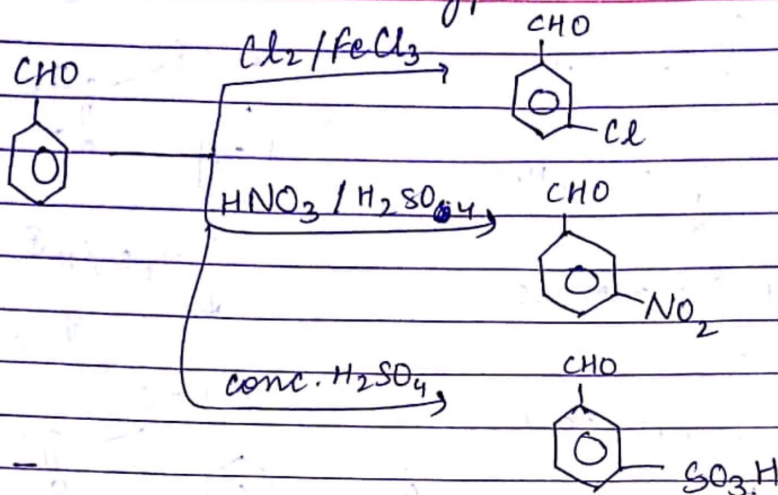 CHO
Cl2/FeCl3
CHO
Cl
HNO3/H2SO4
CHO
NO2
conc. H2SO4
CHO
SO3H